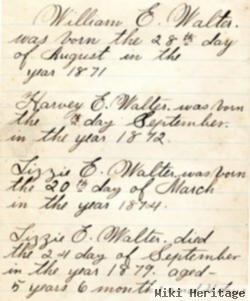 William E. Walter.
was born the 28th day
of August in the
year 1871
Harvey E. Walter. was born
the th day September.
in the year 1872.
Lizzie E. Walter. was born
the 20th day of March
in the year 1874.
Lizzie E. Walter. died
the 24 day of September
in the year 1879. aged-
5 years 6 months and
Wiki Heritage